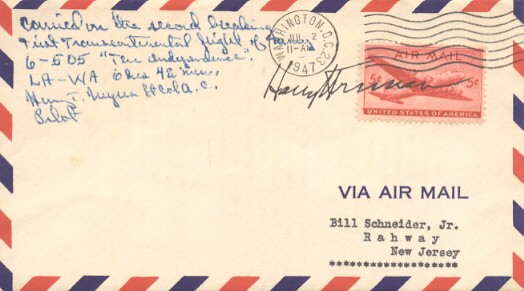 carried on the second speaking
First Transcontinental flight of
6-505 "The Independence"
LA-WA 6 hrs 42 min
Henry T. Myers Lt Col A.C.
Pilot
WASHINGTON, D.C. 23
JUL 2
11-AM
1947
Harry Truman
AIR MAIL
5¢ 5¢
UNITED STATES OF AMERICA
VIA AIR MAIL
Bill Schneider, Jr.
Rahway
New Jersey
********************